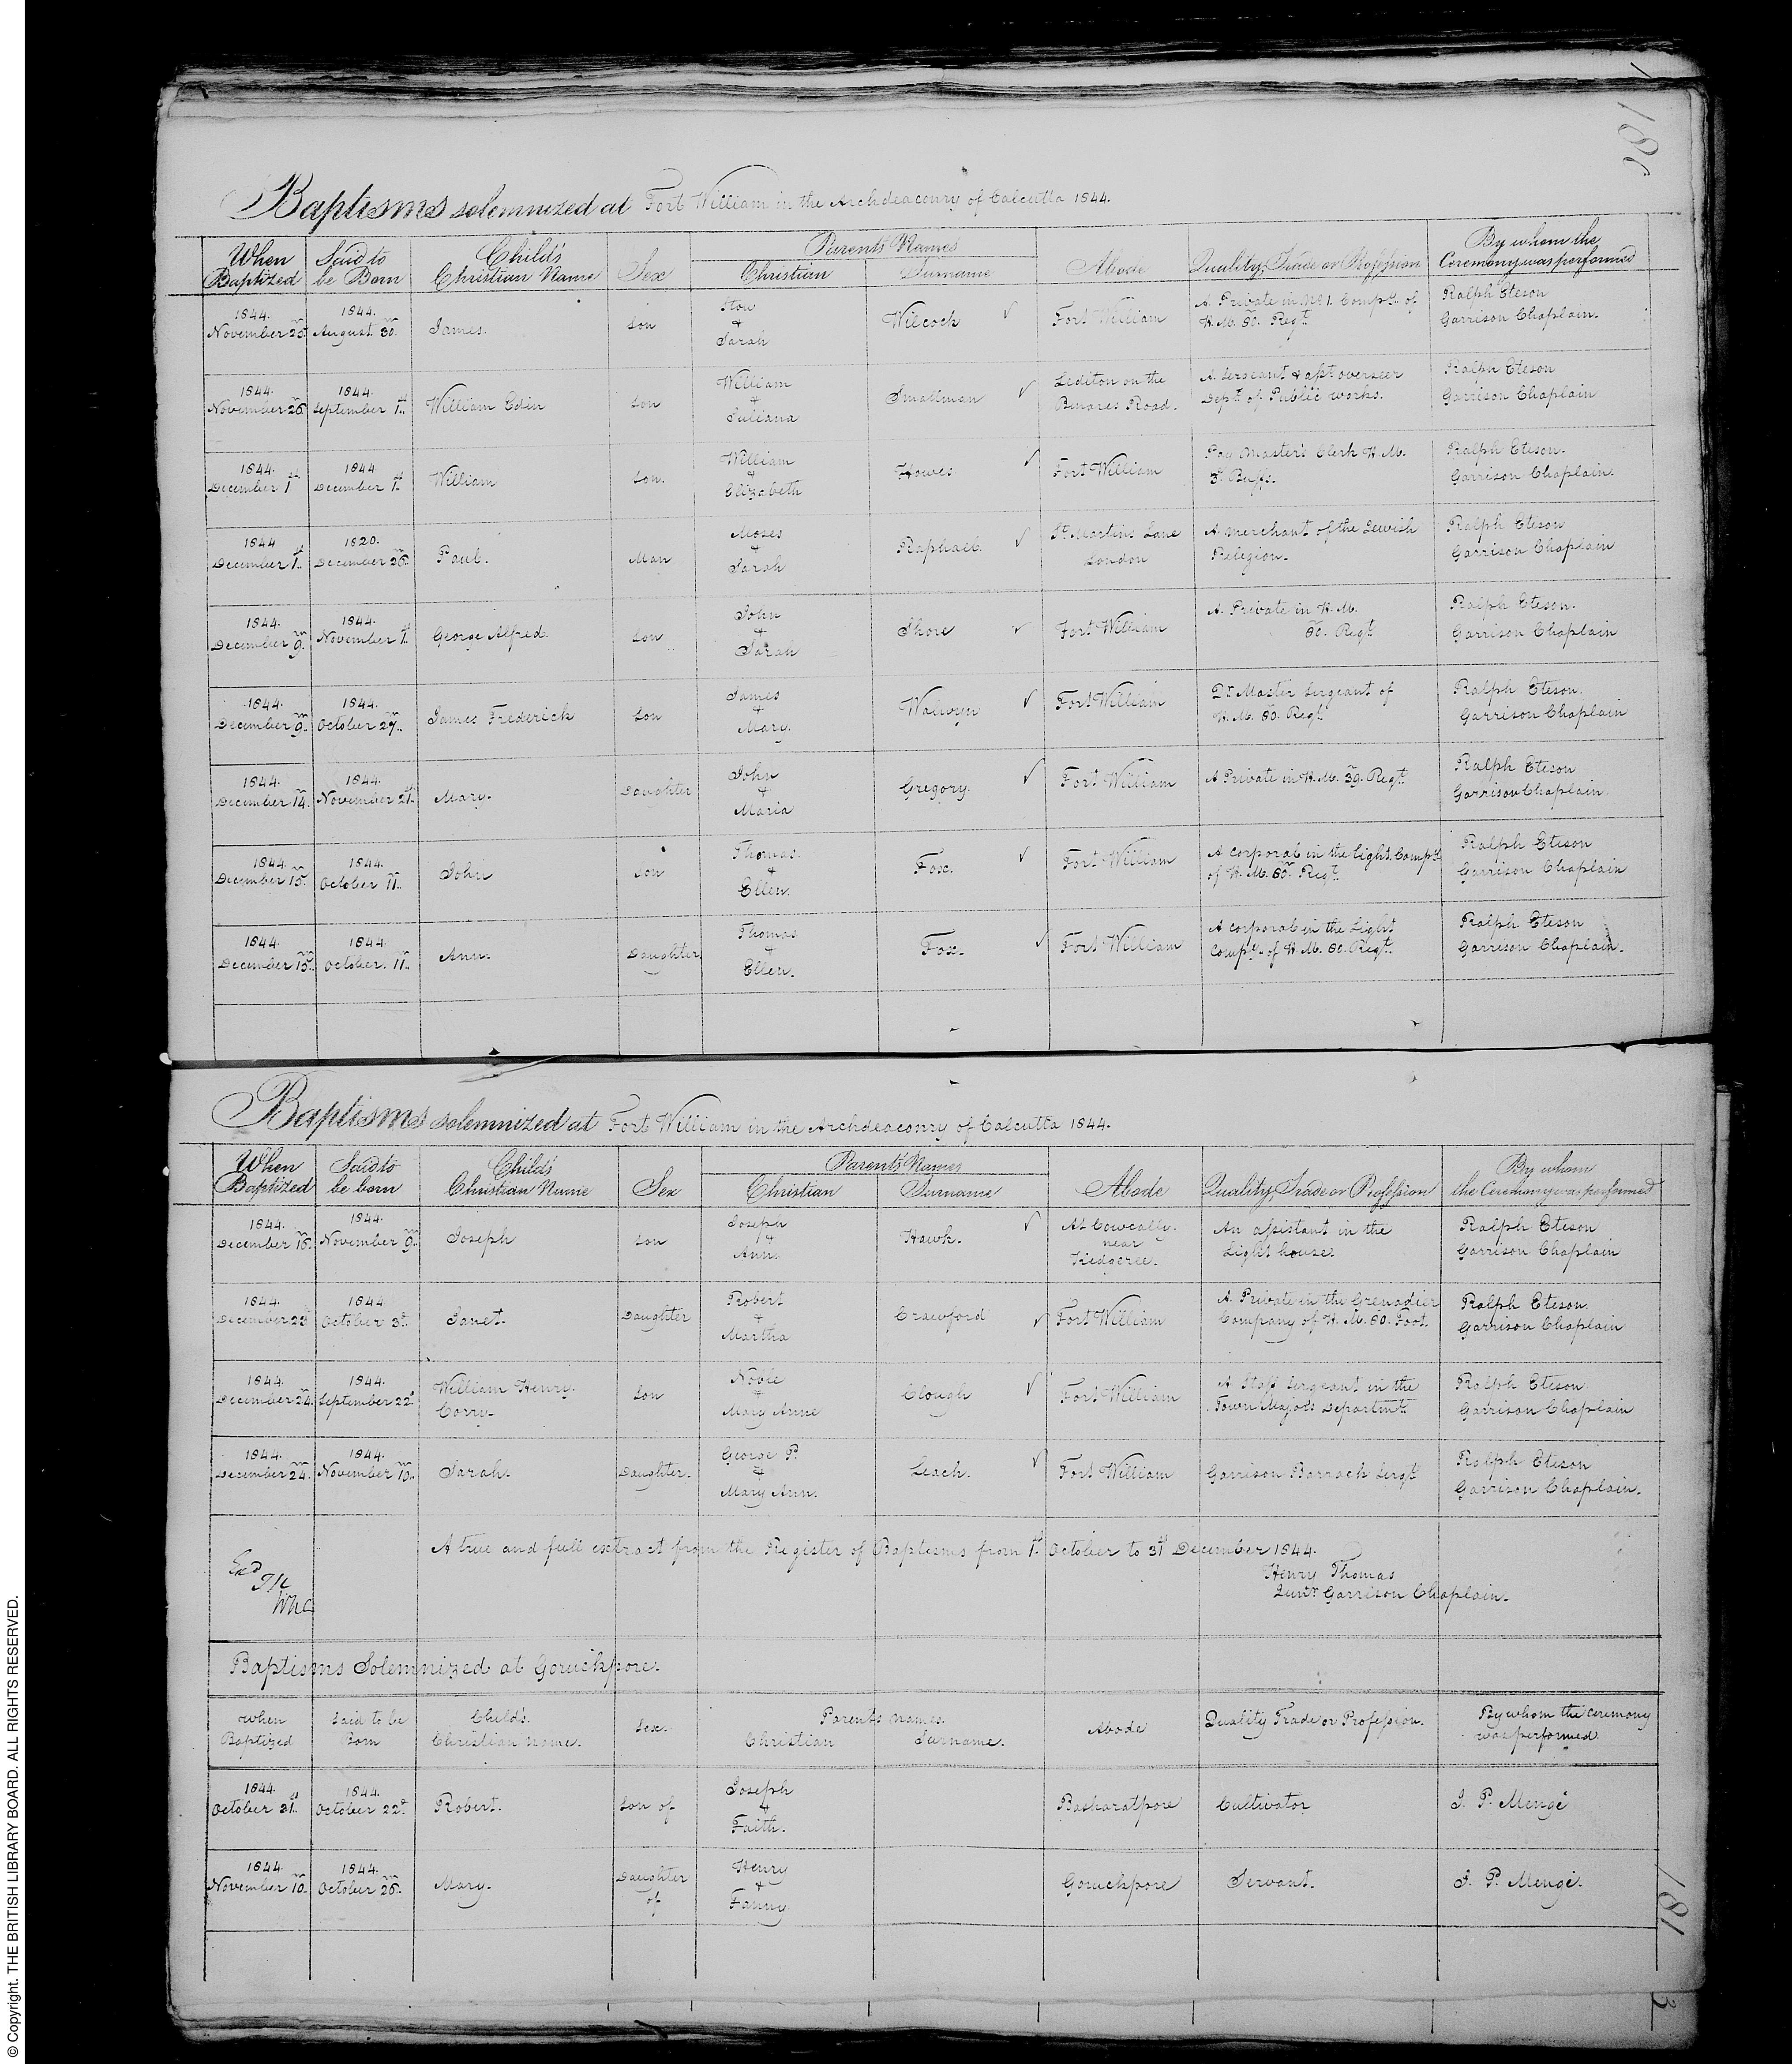 180
Baptisms solemnized at Fort William in the Archdeaconry of Calcutta 1844.
When Baptized | Said to be Born | Child's Christian Name | Sex | Parents' Names Christian | Surname | Abode | Quality, Trade or Profession | By whom the Ceremony was performed
1844. November 25th | 1844. August 30th | James. | Son | & Sarah | Wilcock | Fort William | A Private in No 1. Compy. of H.M. 80th Regt. | Ralph Eteson Garrison Chaplain.
1844. November 26th | 1844. September 1st | William Edin | Son | William & Juliana | Smallman | on the Benares Road. | A Sergeant & asst. overseer Dept. of Public works. | Ralph Eteson Garrison Chaplain
1844. December 1st | 1844. December 1st | William | Son. | William & Elizabeth | Howes | Fort William | Pay Master's Clerk H.M. 3d. Buffs. | Ralph Eteson. Garrison Chaplain.
1844 December 1st | 1820. December 26th | Paul. | Man | Moses & Sarah | Raphael. | St. Martins Lane London | A merchant of the Jewish Religion. | Ralph Eteson Garrison Chaplain
1844. December 9th | 1844. November 1st | George Alfred. | Son | John & Sarah | Shore | Fort William | A Private in H.M. 80th Regt. | Ralph Eteson. Garrison Chaplain
1844. December 9th | 1844. October 27th | James Frederick | Son | James & Mary. | Walwyn | Fort William | Qr. Master Sergeant of H.M. 80th Regt. | Ralph Eteson. Garrison Chaplain
1844. December 14th | 1844. November 21st | Mary. | Daughter | John & Maria | Gregory. | Fort William | A Private in H.M. 39th Regt. | Ralph Eteson Garrison Chaplain.
1844. December 15th | 1844. October 11th | John | Son | Thomas. & Ellen. | Fox. | Fort William | A corporal in the Light Compy. of H.M. 80th Regt. | Ralph Eteson Garrison Chaplain
1844. December 15th | 1844. October 11th | Ann. | Daughter | Thomas & Ellen. | Fox. | Fort William | A corporal in the Light Compy. of H.M. 80. Regt. | Ralph Eteson Garrison Chaplain.
Baptisms solemnized at Fort William in the Archdeaconry of Calcutta 1844.
When Baptized | Said to be born | Child's Christian Name | Sex | Parents' Names Christian | Surname | Abode | Quality, Trade or Profession | By whom the Ceremony was performed
1844. December 16th | 1844. November 9th | Joseph | Son | Joseph & Ann. | Hawk. | At Cowcally. near Kedgeree. | An assistant in the Light house. | Ralph Eteson Garrison Chaplain
1844. December 23d | 1844 October 3d | Janet. | Daughter | Robert & Martha | Crawford | Fort William | A Private in the Grenadier Company of H.M. 80. Foot. | Ralph Eteson. Garrison Chaplain
1844. December 24th | 1844. September 22d | William Henry. Corry. | Son | Noble & Mary Anne | Clough | Fort William | A Staff Sergeant in the Town Major's Department. | Ralph Eteson. Garrison Chaplain
1844. December 24th | 1844. November 10th | Sarah. | Daughter. | George P. & Mary Ann. | Leach. | Fort William | Garrison Barrack Sergt. | Ralph Eteson Garrison Chaplain.
Exd
A true and full extract from the Register of Baptisms from 1st October to 31st December 1844.
Henry Thomas
Junr. Garrison Chaplain.
Baptisms Solemnized at Goruckpore.
When Baptized | Said to be Born | Child's. Christian name. | Sex. | Parents names. Christian | Surname. | Abode | Quality Trade or Profession. | By whom the ceremony was performed
1844. October 31st | 1844. October 22d | Robert. | Son of | Joseph & Faith. | Basharatpore | Cultivator | J. P. Mengé
1844. November 10th | 1844. October 26th | Mary. | Daughter of | Henry & Fanny. | Goruckpore | Servant. | J. P. Mengé.
181
3
© Copyright. THE BRITISH LIBRARY BOARD. ALL RIGHTS RESERVED.